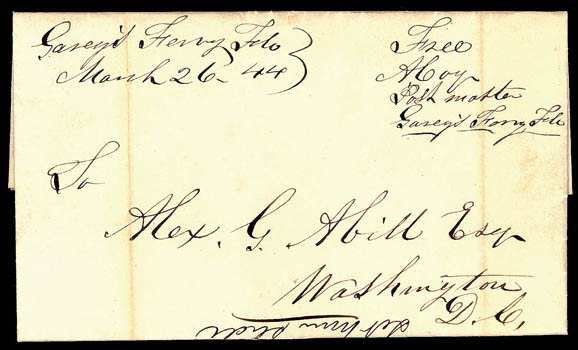 Garey's Ferry Flo
March 26 - 44
Free
Post master
Garey's Ferry Flo
To
Alex. G. Abill Esq
Washington
D. C.